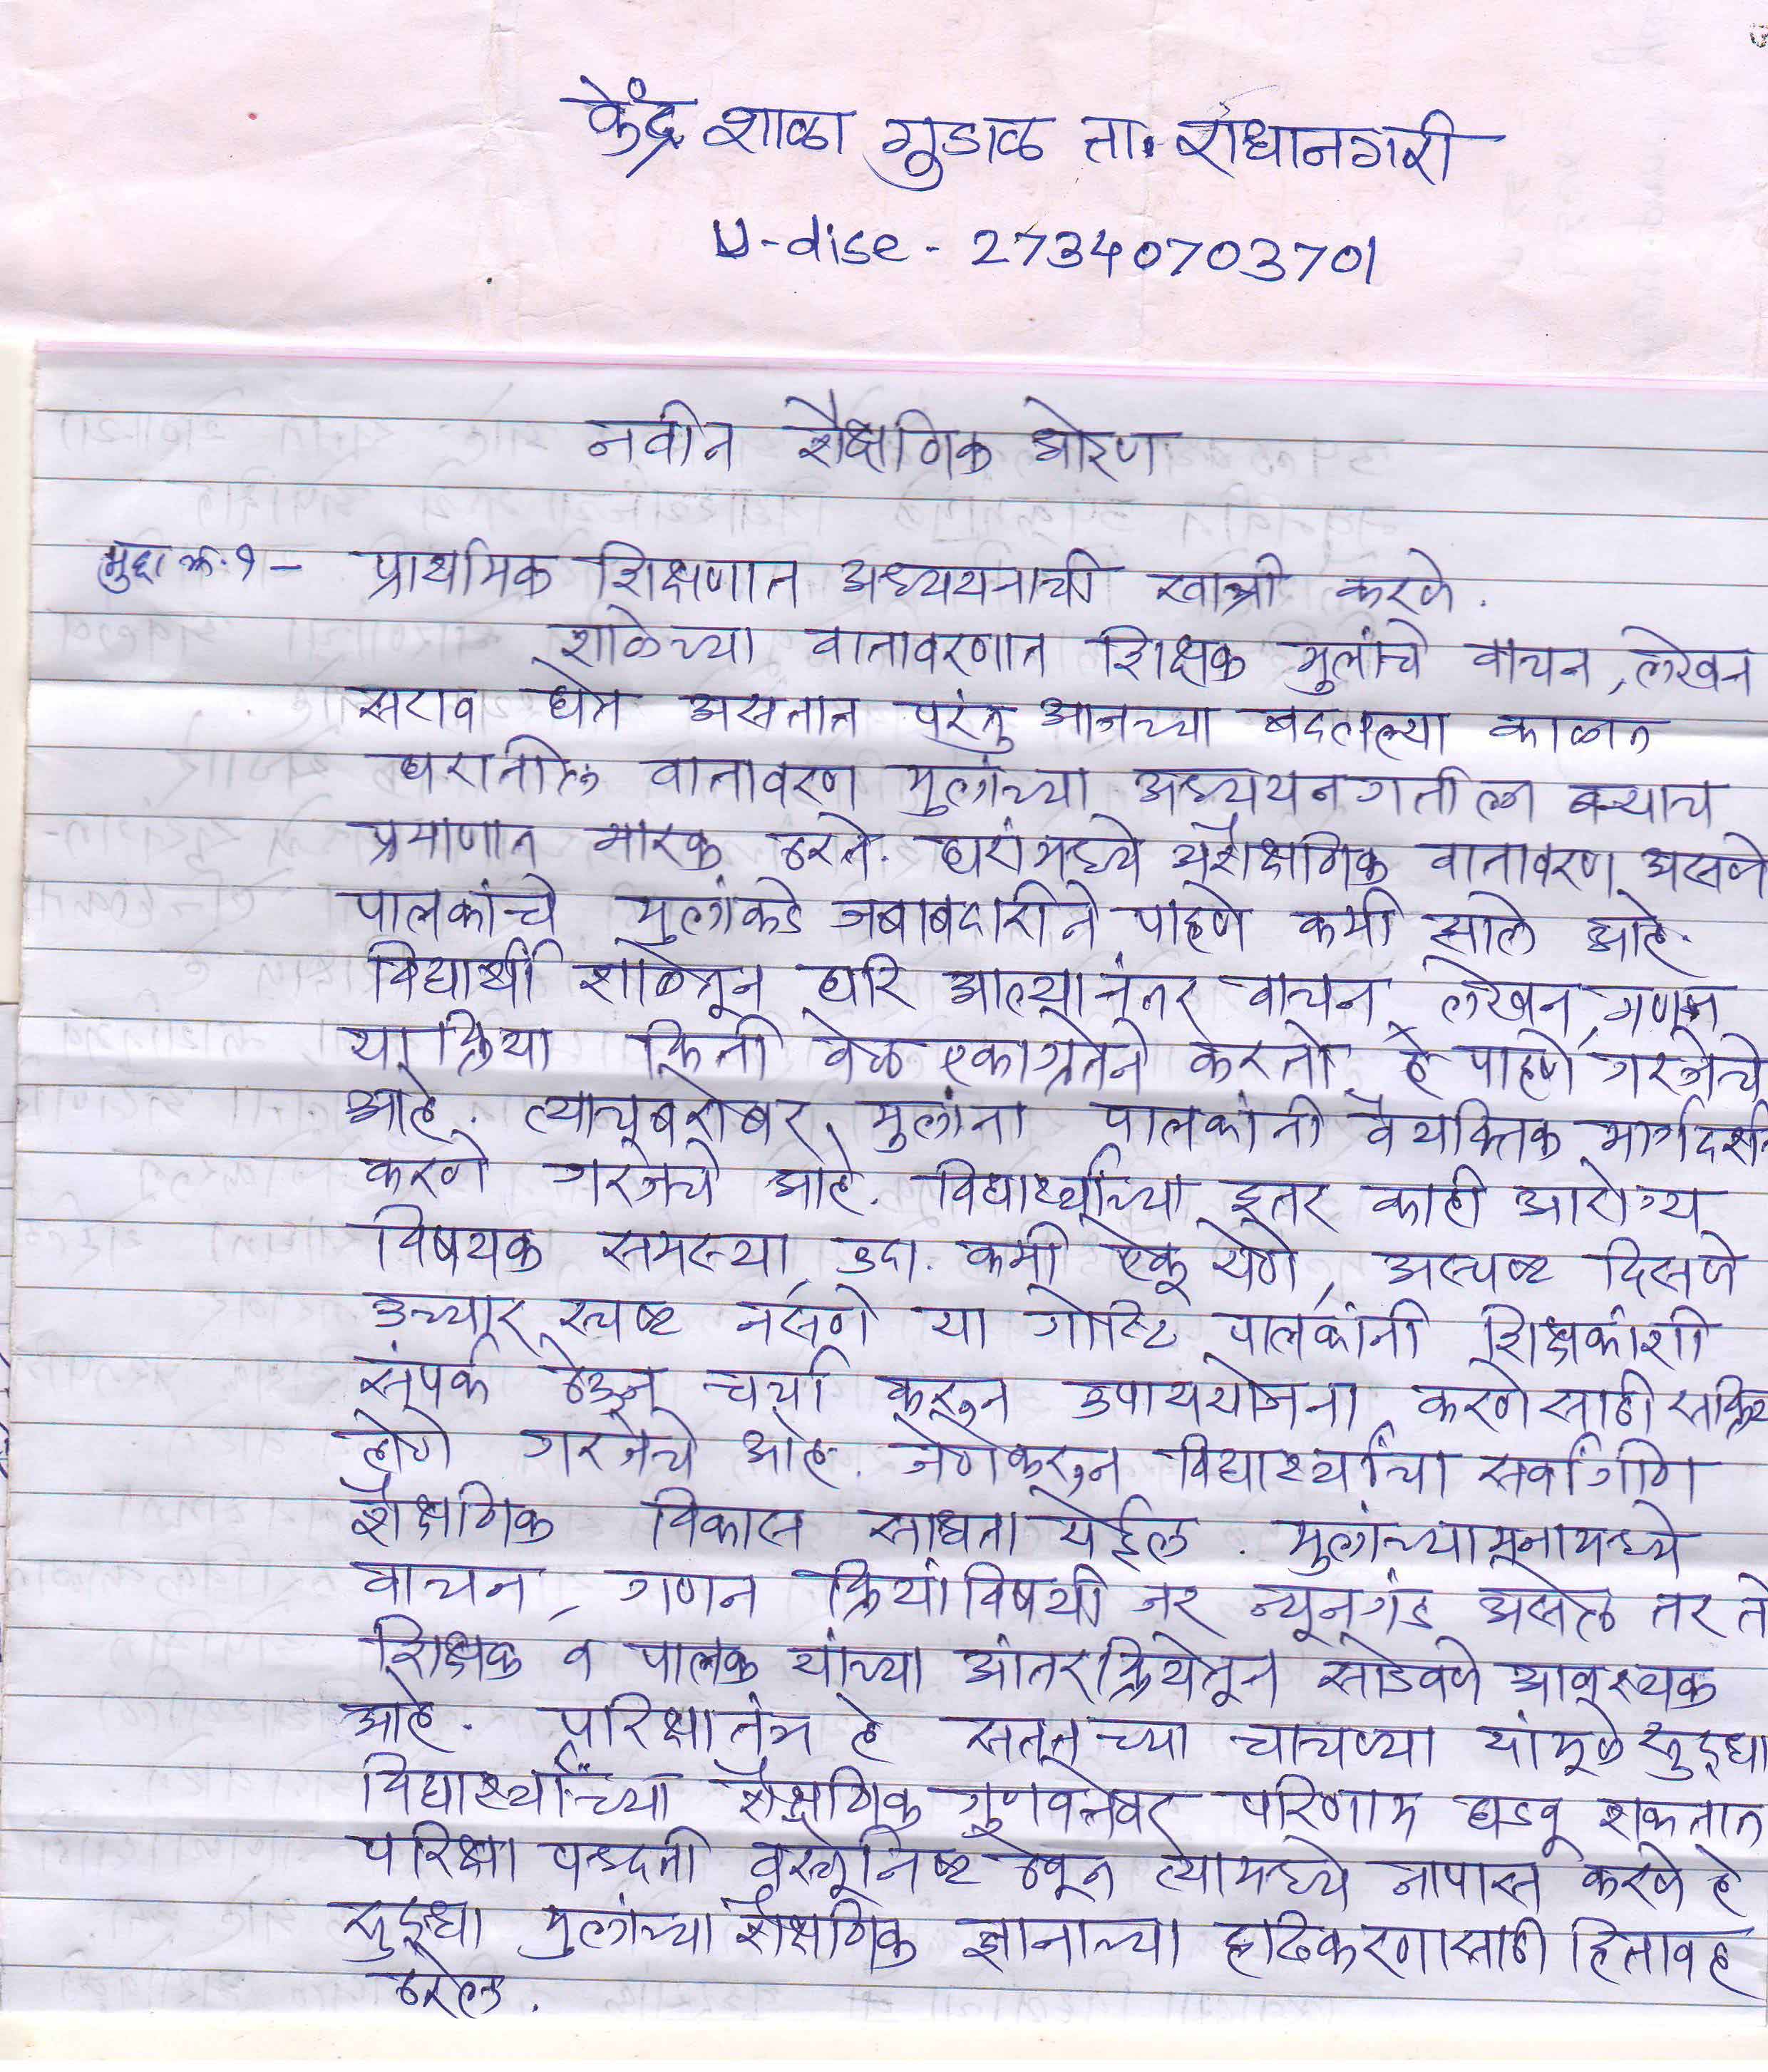 केंद्र शाळा गुडाळ ता. राधानगरी
U-dise - 27340703701
नवीन शैक्षणिक धोरण
मुद्दा क्र. १ – प्राथमिक शिक्षणात अध्ययनाची खात्री करणे.
शाळेच्या वातावरणात शिक्षक मुलांचे वाचन, लेखन
सराव घेत असतात परंतु आजच्या बदलल्या काळात
घरातील वातावरण मुलांच्या अध्ययनगतीला बऱ्याच
प्रमाणात मारक ठरते. घरांमध्ये शैक्षणिक वातावरण असणे
पालकांचे मुलांकडे जबाबदारीने पाहणे कमी झाले आहे.
विद्यार्थी शाळेतून घरि आल्यानंतर वाचन, लेखन, गणन
या क्रिया किती वेळ एकाग्रतेने करतो हे पाहणे गरजेचे
आहे. त्याचबरोबर मुलांना पालकांनी वैयक्तिक मार्गदर्शन
करणे गरजेचे आहे. विद्यार्थ्यांच्या इतर काही आरोग्य
विषयक समस्या, उदा. कमी ऐकू येणे, अस्पष्ट दिसणे
उच्चार स्पष्ट नसणे या गोष्टि पालकांनी शिक्षकांशी
संपर्क ठेऊन चर्चा करून उपाययोजना करणेसाठी सक्रिय
होणे गरजेचे आहे. जेणेकरून विद्यार्थ्यांचा सर्वांगीण
शैक्षणिक विकास साधता येईल. मुलांच्या मनामध्ये
वाचन, गणन क्रियांविषयी जर न्यूनगंड असेल तर ते
शिक्षक व पालक यांच्या आंतरक्रियेतून सोडवणे आवश्यक
आहे. परिक्षा तंत्र हे सततच्या चाचण्या यांमुळे सुद्धा
विद्यार्थ्यांच्या शैक्षणिक गुणवत्तेवर परिणाम घडवू शकतात
परिक्षा पध्दती वस्तूनिष्ट ठेवून त्यामध्ये नापास करणे हे
सुद्धा मुलांच्या शैक्षणिक ज्ञानाच्या दृढिकरणासाठी हितावह
ठरेल.